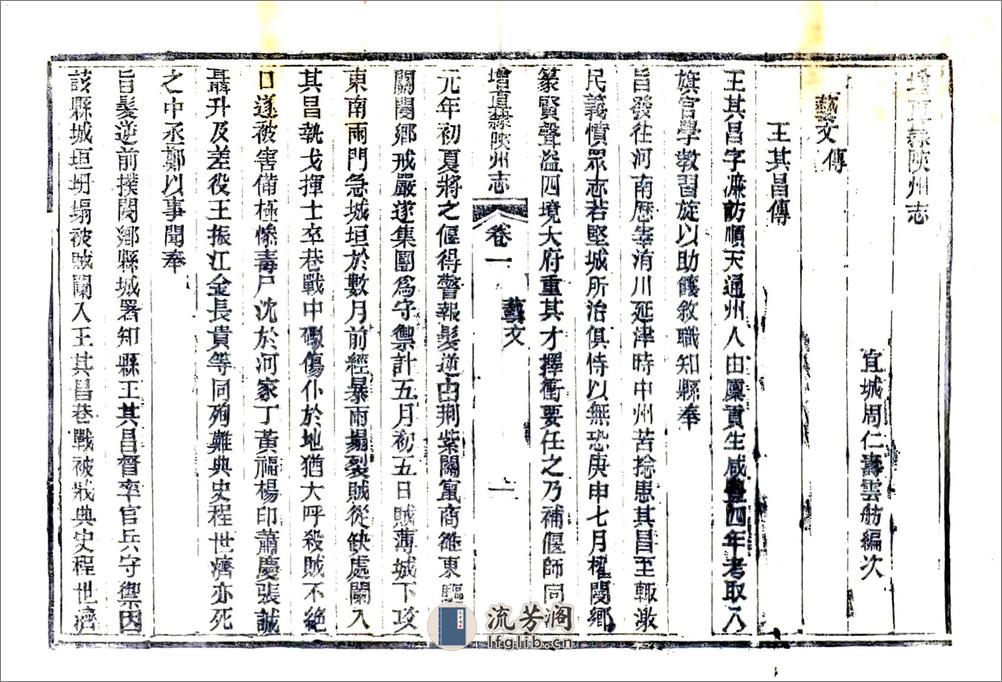 增直隸陝州志
宜城周仁壽雲舫編次
藝文傳
王其昌傳
王其昌字濂訪順天通州人由廩貢生咸豐四年考取八
旗官學教習旋以助饟敘職知縣奉
旨發往河南歷宰洧川延津時中州苦捻患其昌至輒激
民義憤眾志若堅城所治俱恃以無恐庚申七月權閿鄉
篆賢聲溢四境大府重其才擇衝要任之乃補偃師同
增直隸陝州志
卷一
藝文
一
元年初夏將之偃得警報髮逆由荆紫關竄商雒東驅
關閿鄉戒嚴遂集團為守禦計五月初五日賊薄城下攻
東南兩門急城垣於數月前經暴雨塌裂賊從缺處闌入
其昌執戈揮士卒巷戰中礮傷仆於地猶大呼殺賊不絕
口遂被害備極慘毒尸沈於河家丁黃福楊印蕭慶張誠
聶升及差役王振江金長貴等同殉難典史程世濟亦死
之中丞鄭以事聞奉
旨髮逆前撲閿鄉縣城署知縣王其昌督率官兵守禦因
該縣城垣坍塌被賊闌入王其昌巷戰被戕典史程世濟
流芳阁
lfglib.cn